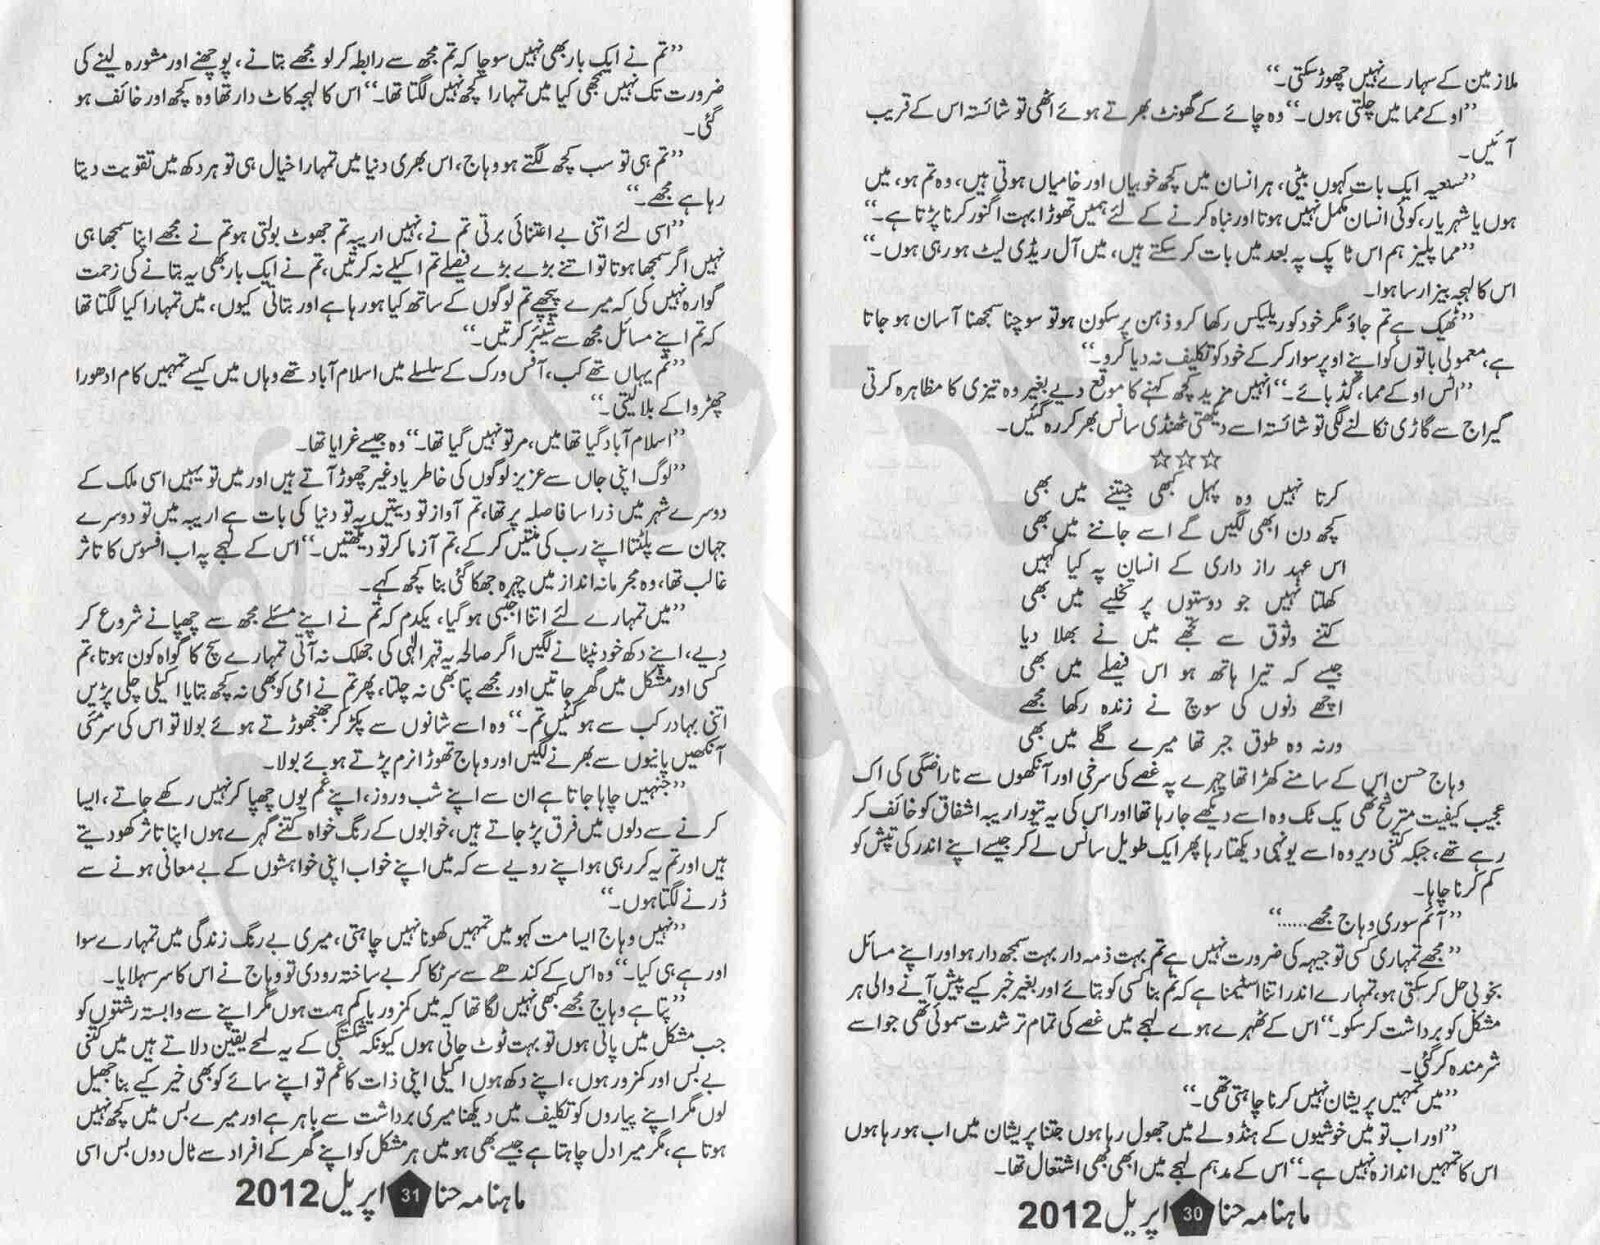 ملازمین کے سہارے نہیں چھوڑ سکتی۔‘‘
’’او کے مما میں چلتی ہوں۔‘‘ وہ چائے کے گھونٹ بھرتے ہوئے اٹھی تو شائستہ اس کے قریب
آئیں۔
’’سنعیہ ایک بات کہوں بیٹی، ہر انسان میں کچھ خوبیاں اور خامیاں ہوتی ہیں، وہ تم ہو، میں
ہوں یا شہر یار، کوئی انسان مکمل نہیں ہوتا اور نباہ کرنے کے لئے ہمیں تھوڑا بہت اگنور کرنا پڑتا ہے۔‘‘
’’مما پلیز ہم اس ٹاپک پہ بعد میں بات کر سکتے ہیں، میں آل ریڈی لیٹ ہو رہی ہوں۔‘‘
اس کا لہجہ بیزار سا ہوا۔
’’ٹھیک ہے تم جاؤ مگر خود کو ریلیکس رکھا کرو ذہن پرسکون ہو تو سوچنا سمجھنا آسان ہو جاتا
ہے، معمولی باتوں کو اپنے اوپر سوار کر کے خود کو تکلیف نہ دیا کرو۔‘‘
’’اٹس او کے مما، گڈ بائے۔‘‘ انہیں مزید کچھ کہنے کا موقع دیے بغیر وہ تیزی کا مظاہرہ کرتی
گیراج سے گاڑی نکالنے لگی تو شائستہ اسے دیکھتی ٹھنڈی سانس بھر کر رہ گئیں۔
☆☆☆
کرتا نہیں وہ پہل کبھی جیتنے میں بھی
کچھ دن ابھی لگیں گے اسے جاننے میں بھی
اس عہد راز داری کے انسان پہ کیا کہیں
کھلتا نہیں جو دوستوں پر تخلیے میں بھی
کتنے وثوق سے تجھے میں نے بھلا دیا
جیسے کہ تیرا ہاتھ ہو اس فیصلے میں بھی
اچھے دنوں کی سوچ نے زندہ رکھا مجھے
ورنہ وہ طوق جبر تھا میرے گلے میں بھی
وہاج حسن اس کے سامنے کھڑا تھا چہرے پہ غصے کی سرخی اور آنکھوں سے ناراضگی کی اک
عجیب کیفیت مترشح تھی یک ٹک وہ اسے دیکھے جا رہا تھا اور اس کی یہ تیور اریبہ اشفاق کو خائف کر
رہے تھے، جبکہ کتنی دیر وہ اسے یونہی دیکھتا رہا پھر ایک طویل سانس لے کر جیسے اپنے اندر کی تپش کو
کم کرنا چاہا۔
’’آئم سوری وہاج مجھے......‘‘
’’مجھے تمہاری کسی توجیہہ کی ضرورت نہیں ہے تم بہت ذمہ دار بہت سمجھ دار ہو اور اپنے مسائل
بخوبی حل کر سکتی ہو، تمہارے اندر اتنا اسٹیمنا ہے کہ تم بنا کسی کو بتائے اور بغیر خبر کے پیش آنے والی ہر
مشکل کو برداشت کر سکو۔‘‘ اس کے ٹھہرے ہوے لہجے میں غصے کی تمام تر شدت سموئی تھی جو اسے
شرمندہ کر گئی۔
’’میں تمہیں پریشان نہیں کرنا چاہتی تھی۔‘‘
’’اور اب تو میں خوشیوں کے ہنڈولے میں جھول رہا ہوں جتنا پریشان میں اب ہو رہا ہوں
اس کا تمہیں اندازہ نہیں ہے۔‘‘ اس کے مدہم لہجے میں ابھی بھی اشتعال تھا۔
ماہنامہ حنا 30 اپریل 2012
’’تم نے ایک بار بھی نہیں سوچا کہ تم مجھ سے رابطہ کر لو مجھے بتانے، پوچھنے اور مشورہ لینے کی
ضرورت تک نہیں سمجھی کیا میں تمہارا کچھ نہیں لگتا تھا۔‘‘ اس کا لہجہ کاٹ دار تھا وہ کچھ اور خائف ہو
گئی۔
’’تم ہی تو سب کچھ لگتے ہو وہاج، اس بھری دنیا میں تمہارا خیال ہی تو ہر دکھ میں تقویت دیتا
رہا ہے مجھے۔‘‘
’’اسی لئے اتنی بے اعتنائی برتی تم نے، نہیں اریبہ تم جھوٹ بولتی ہو تم نے مجھے اپنا سمجھا ہی
نہیں اگر سمجھا ہوتا تو اتنے بڑے بڑے فیصلے تم اکیلے نہ کرتیں، تم نے ایک بار بھی یہ بتانے کی زحمت
گوارہ نہیں کی کہ میرے پیچھے تم لوگوں کے ساتھ کیا ہو رہا ہے اور بتاتی کیوں، میں تمہارا کیا لگتا تھا
کہ تم اپنے مسائل مجھ سے شیئر کرتیں۔‘‘
’’تم یہاں تھے کب، آفس ورک کے سلسلے میں اسلام آباد تھے وہاں میں کیسے تمہیں کام ادھورا
چھڑوا کے بلا لیتی۔‘‘
’’اسلام آباد گیا تھا میں، مر تو نہیں گیا تھا۔‘‘ وہ جیسے غرایا تھا۔
’’لوگ اپنی جاں سے عزیز لوگوں کی خاطر یاد غیر چھوڑ آتے ہیں اور میں تو یہیں اسی ملک کے
دوسرے شہر میں ذرا سا فاصلہ پر تھا، تم آواز تو دیتیں یہ تو دنیا کی بات ہے اریبہ میں تو دوسرے
جہان سے پلٹتا اپنے رب کی منتیں کر کے، تم آزما کر تو دیکھتیں۔‘‘ اس کے لہجے پہ اب افسوس کا تاثر
غالب تھا، وہ مجرمانہ انداز میں چہرہ جھکا گئی بنا کچھ کہے۔
’’میں تمہارے لئے اتنا اجنبی ہو گیا، یکدم کہ تم نے اپنے مسئلے مجھ سے چھپانے شروع کر
دیے، اپنے دکھ خود نپٹانے لگیں اگر صالحہ پہ قہر الٰہی کی جھلک نہ آتی تمہارے سچ کا گواہ کون ہوتا، تم
کسی اور مشکل میں گھر جاتیں اور مجھے پتا بھی نہ چلتا، پھر تم نے امی کو بھی نہ کچھ بتایا اکیلی چلی پڑیں
اتنی بہادر کب سے ہو گئیں تم۔‘‘ وہ اسے شانوں سے پکڑ کر جھنجھوڑتے ہوئے بولا تو اس کی سرمئی
آنکھیں پانیوں سے بھرنے لگیں اور وہاج تھوڑا نرم پڑتے ہوئے بولا۔
’’جنہیں چاہا جاتا ہے ان سے اپنے شب و روز، اپنے غم یوں چھپا کر نہیں رکھے جاتے، ایسا
کرنے سے دلوں میں فرق پڑ جاتے ہیں، خوابوں کے رنگ خواہ کتنے گہرے ہوں اپنا تاثر کھو دیتے
ہیں اور تم یہ کر رہی ہو اپنے رویے سے کہ میں اپنے خواب اپنی خواہشوں کے بے معانی ہونے سے
ڈرنے لگتا ہوں۔‘‘
’’نہیں وہاج ایسا مت کہو میں تمہیں کھونا نہیں چاہتی، میری بے رنگ زندگی میں تمہارے سوا
اور ہے ہی کیا۔‘‘ وہ اس کے کندھے سے سر ٹکا کر بے ساختہ رو دی تو وہاج نے اس کا سر سہلایا۔
’’پتا ہے وہاج مجھے کبھی نہیں لگا تھا کہ میں کمزور یا کم ہمت ہوں مگر اپنے سے وابستہ رشتوں کو
جب مشکل میں پاتی ہوں تو بہت ٹوٹ جاتی ہوں کیونکہ شکستگی کے یہ لمحے یقین دلاتے ہیں میں کتنی
بے بس اور کمزور ہوں، اپنے دکھ ہوں اکیلی اپنی ذات کا غم تو اپنے سائے کو بھی خبر کیے بنا جھیل
لوں مگر اپنے پیاروں کو تکلیف میں دیکھنا میری برداشت سے باہر ہے اور میرے بس میں کچھ نہیں
ہوتا ہے، مگر میرا دل چاہتا ہے جیسے بھی ہو میں ہر مشکل کو اپنے گھر کے افراد سے ٹال دوں بس اسی
ماہنامہ حنا 31 اپریل 2012